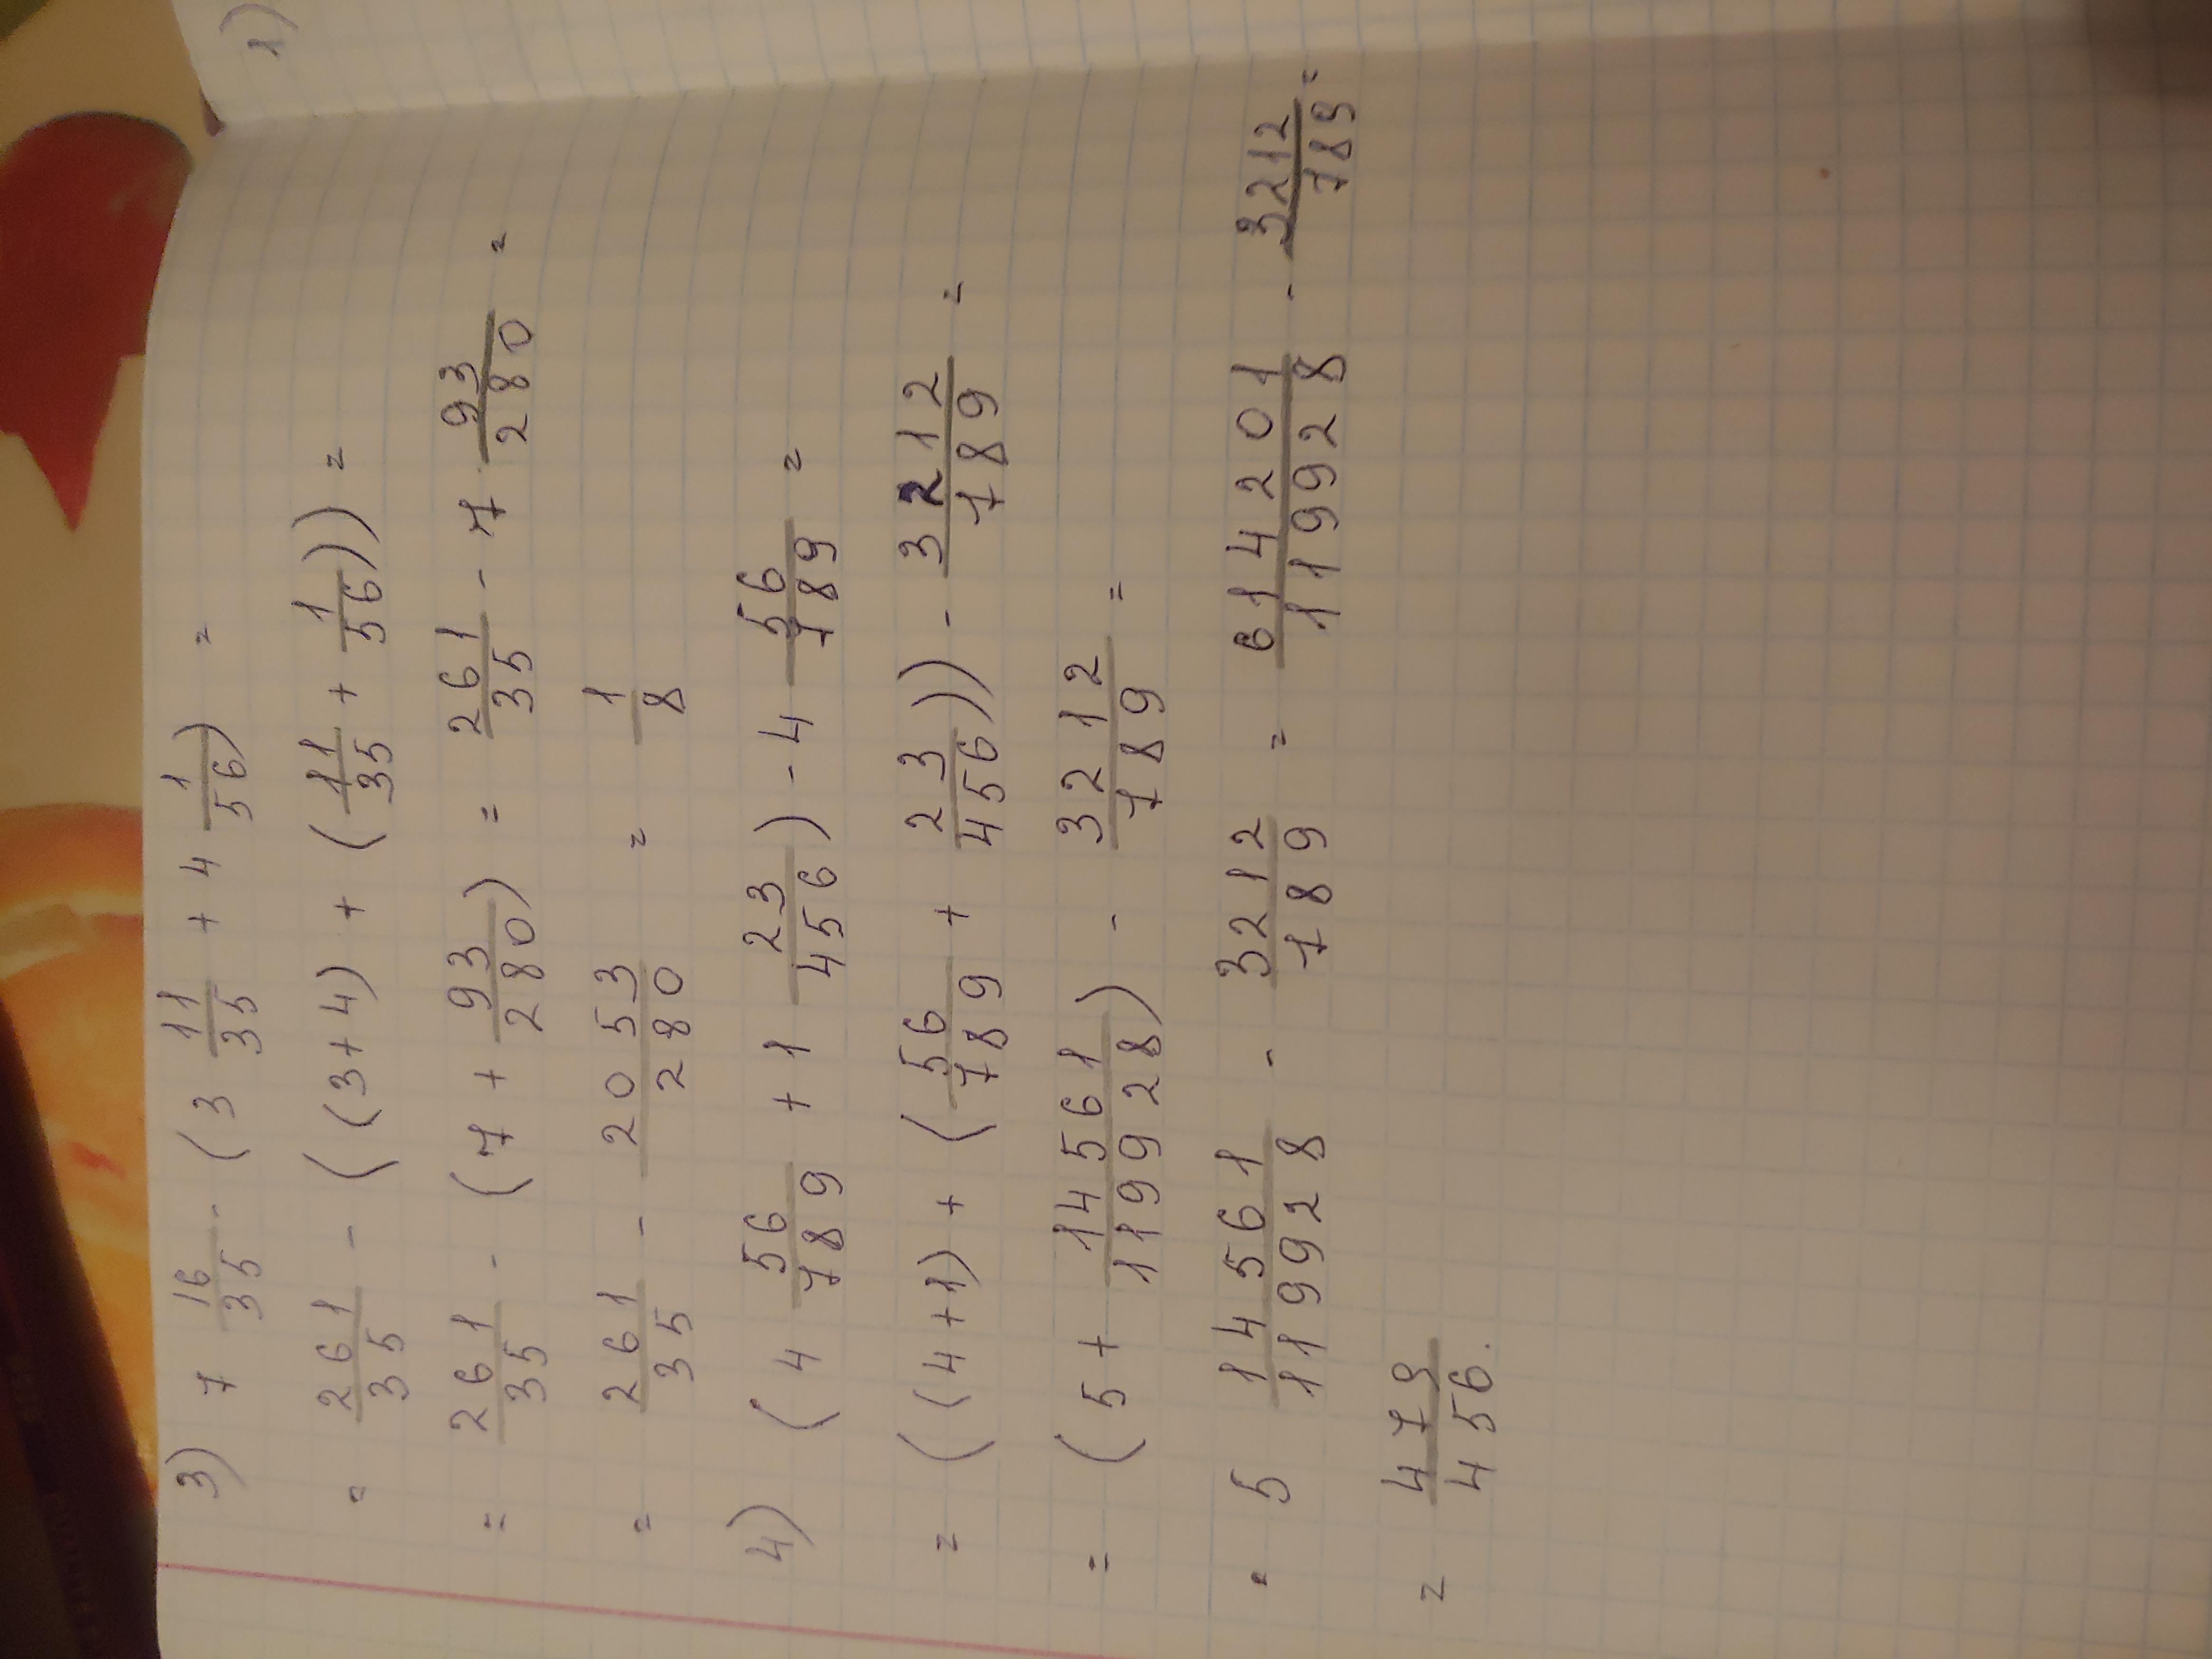 3) 7 16/35 - (3 11/35 + 4 1/56) =
= 261/35 - ((3+4) + (11/35 + 1/56)) =
= 261/35 - (7 + 93/280) = 261/35 - 7 93/280 =
= 261/35 - 2053/280 = 1/8
4) (4 56/789 + 1 23/456) - 4 56/789 =
= ((4+1) + (56/789 + 23/456)) - 3212/789 =
= (5 + 14561/119928) - 3212/789 =
= 5 14561/119928 - 3212/789 = 614201/119928 - 3212/789 =
= 479/456.
1)